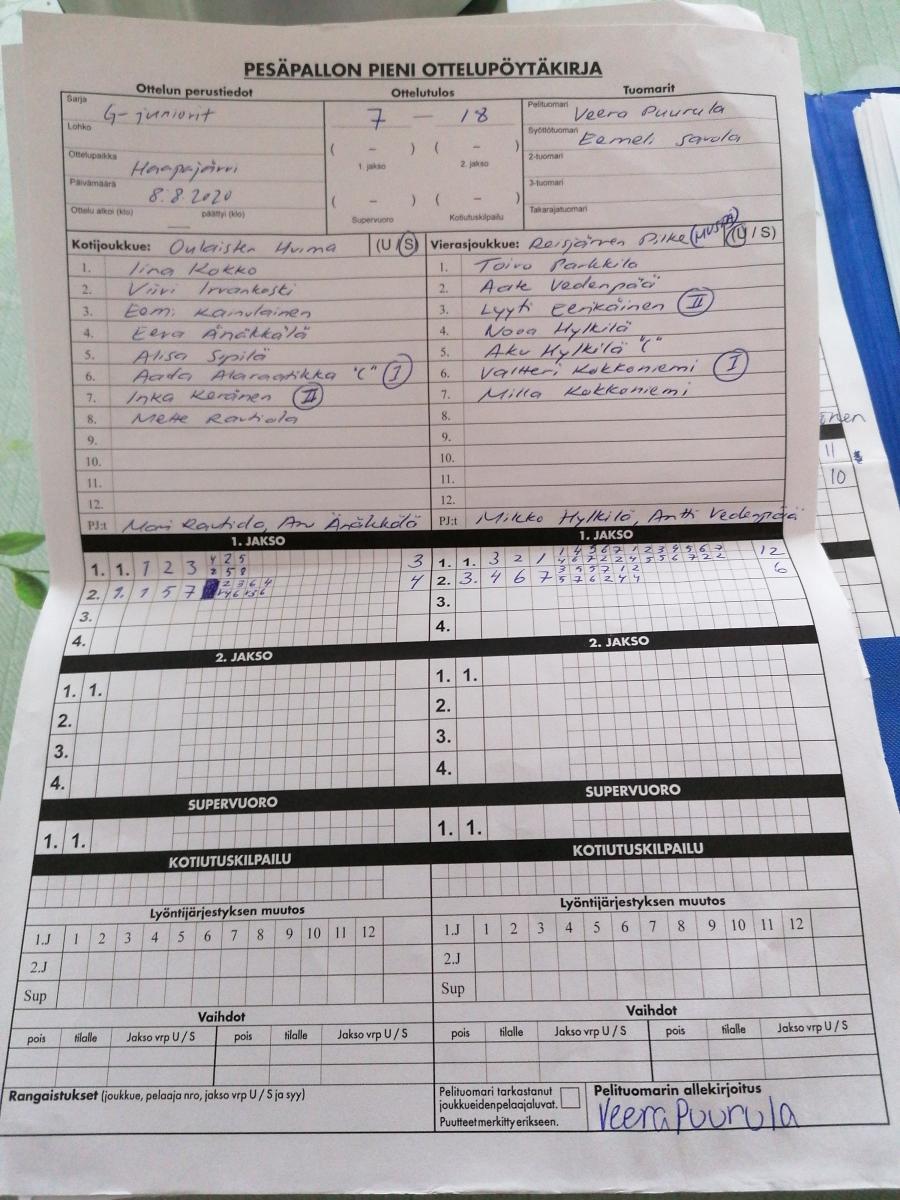 PESÄPALLON PIENI OTTELUPÖYTÄKIRJA
Ottelun perustiedot
Sarja G-juniorit
Lohko
Ottelupaikka Haapajärvi
Päivämäärä 8.8.2020
Ottelu alkoi (klo) päättyi (klo)
Ottelutulos
7 — 18
( – ) ( – )
1. jakso 2. jakso
( – ) ( – )
Supervuoro Kotiutuskilpailu
Tuomarit
Pelituomari Veera Puurula
Syöttötuomari Eemeli Savola
2-tuomari
3-tuomari
Takarajatuomari
Kotijoukkue: Oulaisten Huima (U / S)
1. Iina Kokko
2. Viivi Irvankoski
3. Eemi Kainulainen
4. Eeva Änäkkälä
5. Alisa Sipilä
6. Aada Alaraatikka "C" I
7. Inka Keränen II
8. Mette Rautiola
9.
10.
11.
12.
PJ:t Mari Rautiola, Anu Änäkkälä
Vierasjoukkue: Reisjärven Pilke (MUSTA) (U / S)
1. Toivo Parkkila
2. Aate Vedenpää
3. Lyyti Eerikäinen II
4. Nooa Hylkilä
5. Aku Hylkilä "C"
6. Valtteri Kokkoniemi I
7. Milla Kokkoniemi
8.
9.
10.
11.
12.
PJ:t Mikko Hylkilä, Antti Vedenpää
1. JAKSO
1. 1. 1 2 3 3
2. 1. 1 5 7 4
3.
4.
1. JAKSO
1. 1. 3 2 1 12
2. 3. 4 6 7 6
3.
4.
2. JAKSO
1. 1.
2.
3.
4.
2. JAKSO
1. 1.
2.
3.
4.
SUPERVUORO
1. 1.
SUPERVUORO
1. 1.
KOTIUTUSKILPAILU
KOTIUTUSKILPAILU
Lyöntijärjestyksen muutos
1.J 1 2 3 4 5 6 7 8 9 10 11 12
2.J
Sup
Lyöntijärjestyksen muutos
1.J 1 2 3 4 5 6 7 8 9 10 11 12
2.J
Sup
Vaihdot
pois tilalle Jakso vrp U / S pois tilalle Jakso vrp U / S
Vaihdot
pois tilalle Jakso vrp U / S pois tilalle Jakso vrp U / S
Rangaistukset (joukkue, pelaaja nro, jakso vrp U / S ja syy)
Pelituomari tarkastanut
joukkueidenpelaajaluvat.
Puutteet merkitty erikseen.
Pelituomarin allekirjoitus
Veera Puurula
11
10